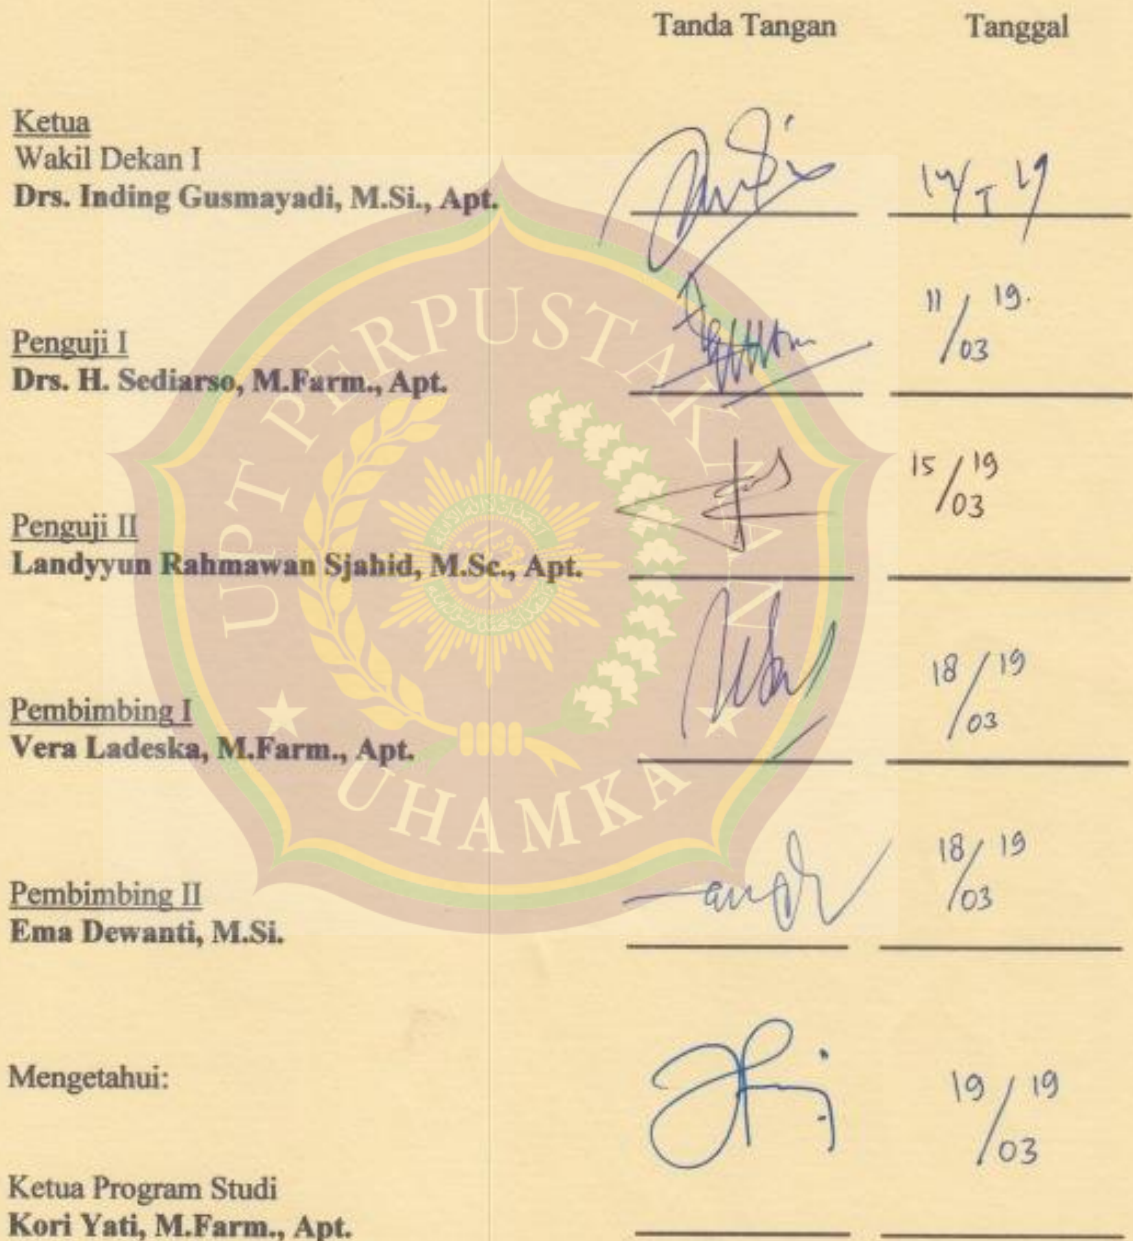 Tanda Tangan Tanggal
Ketua
Wakil Dekan I
Drs. Inding Gusmayadi, M.Si., Apt.
Penguji I
Drs. H. Sediarso, M.Farm., Apt.
11/03 19.
Penguji II
Landyyun Rahmawan Sjahid, M.Sc., Apt.
15/03 19
Pembimbing I
Vera Ladeska, M.Farm., Apt.
18/03 19
Pembimbing II
Ema Dewanti, M.Si.
18/03 19
Mengetahui:
19/03 19
Ketua Program Studi
Kori Yati, M.Farm., Apt.
UPT PERPUSTAKAAN
UHAMKA